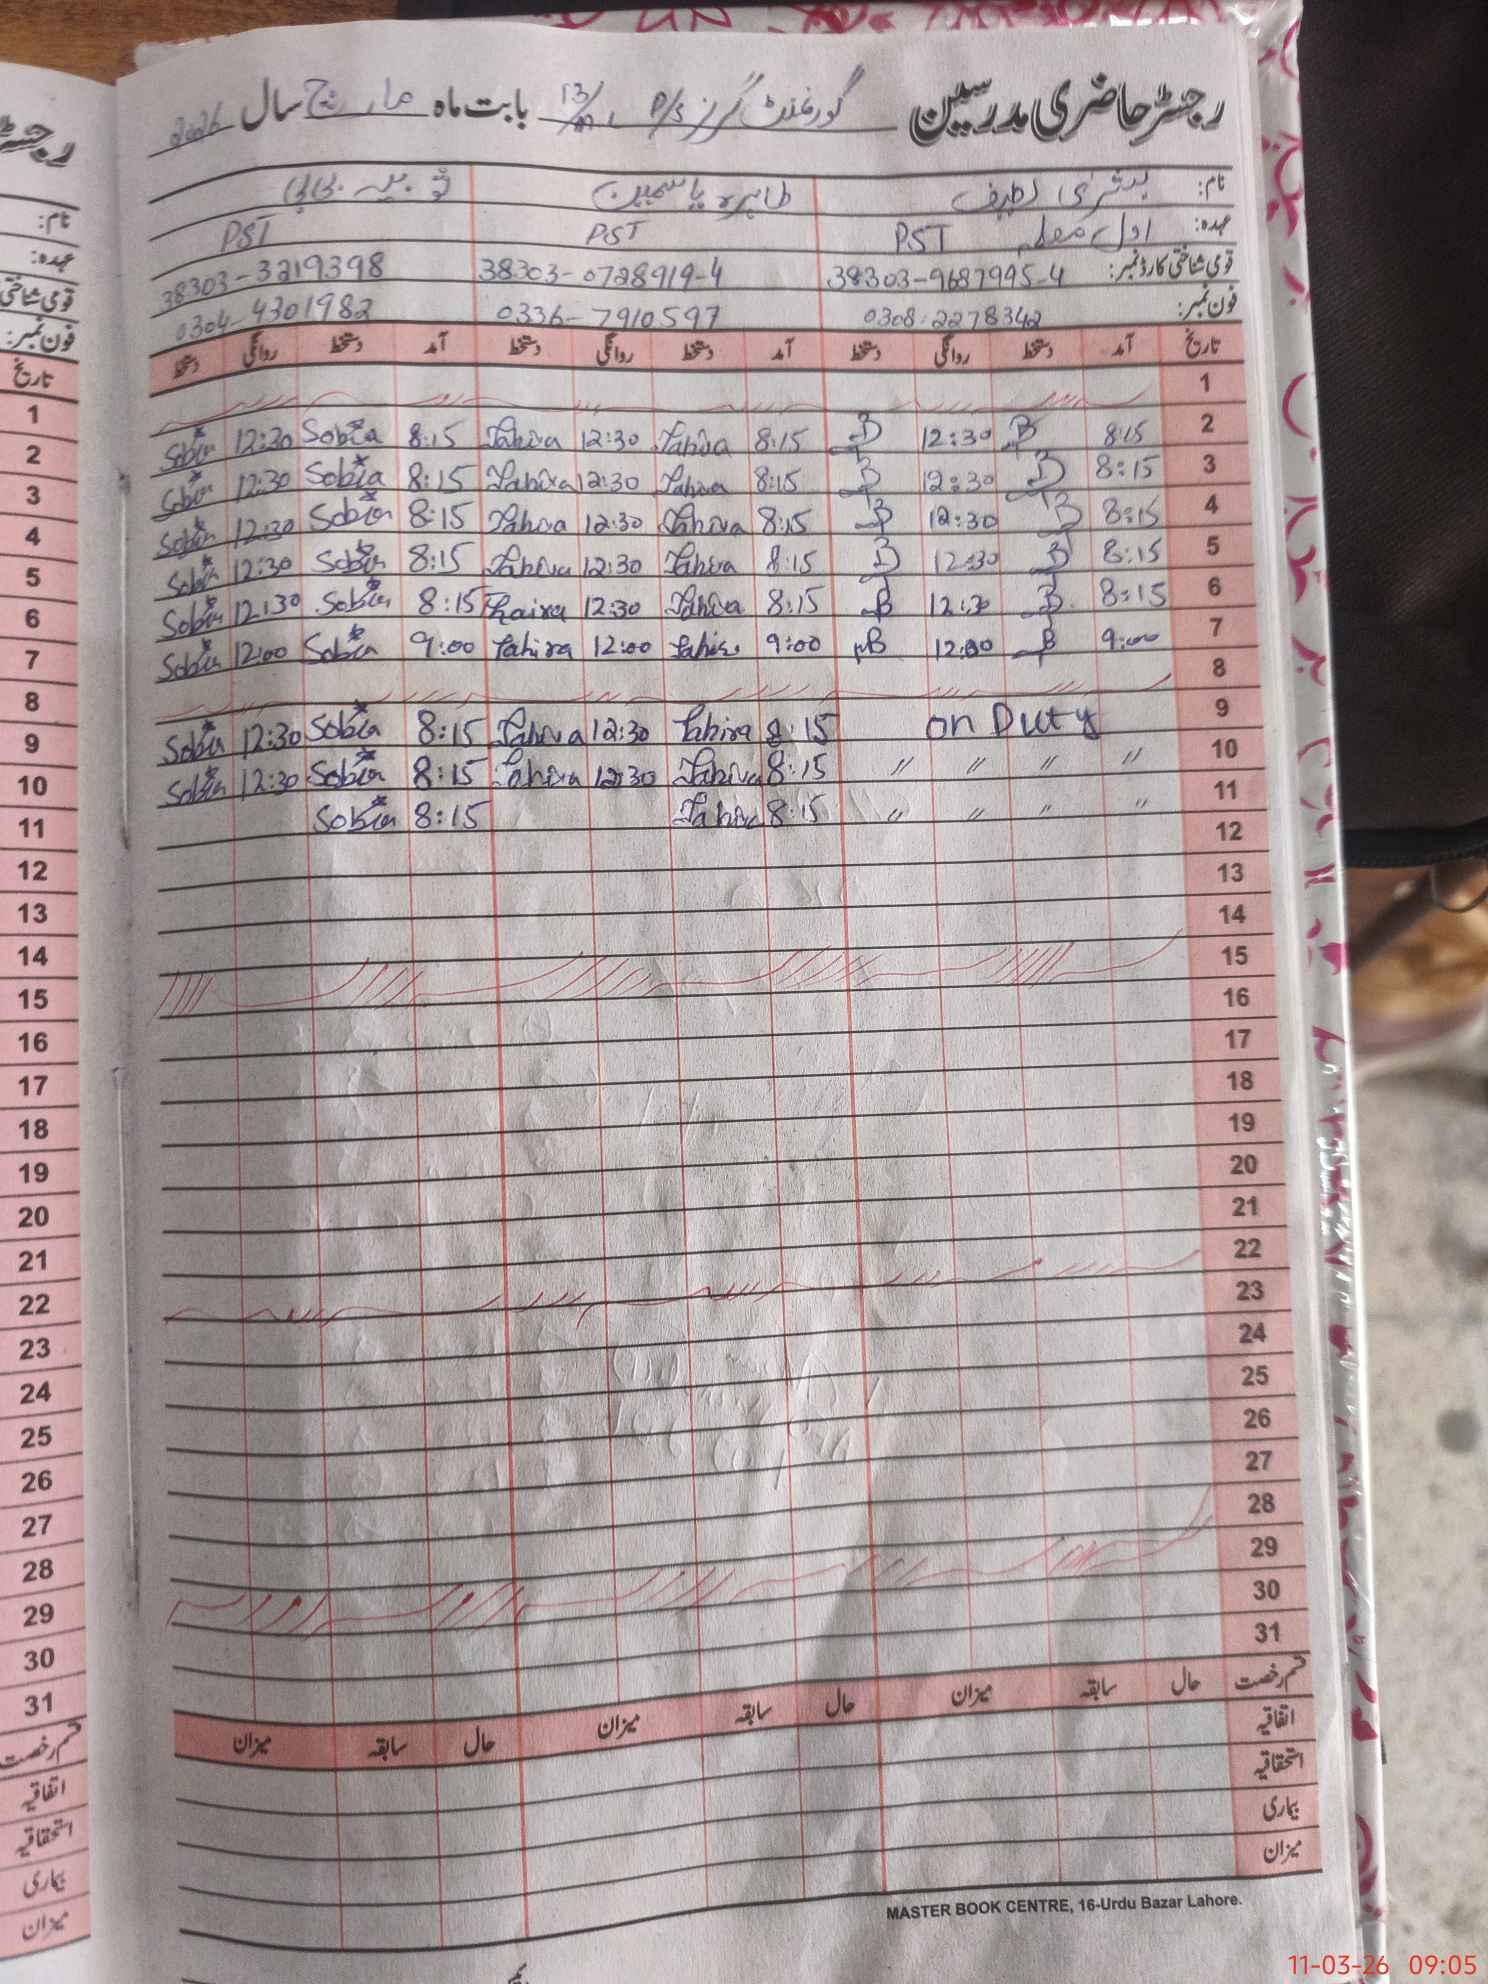 رجسٹر حاضری مدرسین گورنمنٹ گرلز P/S 13/ML بابت ماہ مارچ سال 2026
نام: بشریٰ لطیف طاہرہ یاسمین ثوبیہ بی بی
عہدہ: اول معلمہ PST PST PST
قومی شناختی کارڈ نمبر: 38303-9687995-4 38303-0728919-4 38303-3219398
فون نمبر: 0308-2278342 0336-7910597 0304-4301982
تاریخ آمد دستخط روانگی دستخط آمد دستخط روانگی دستخط آمد دستخط روانگی دستخط
1
2 8:15 B 12:30 B 8:15 Tahira 12:30 Tahira 8:15 Sobia 12:30 Sobia
3 8:15 B 12:30 B 8:15 Tahira 12:30 Tahira 8:15 Sobia 12:30 Sobia
4 8:15 B 12:30 B 8:15 Tahira 12:30 Tahira 8:15 Sobia 12:30 Sobia
5 8:15 B 12:30 B 8:15 Tahira 12:30 Tahira 8:15 Sobia 12:30 Sobia
6 8:15 B 12:30 B 8:15 Tahira 12:30 Thaira 8:15 Sobia 12:30 Sobia
7 9:00 B 12:00 B 9:00 Tahira 12:00 Tahira 9:00 Sobia 12:00 Sobia
8
9 on Duty 8:15 Tahira 12:30 Tahira 8:15 Sobia 12:30 Sobia
10 " " " " 8:15 Tahira 12:30 Tahira 8:15 Sobia 12:30 Sobia
11 " " " " 8:15 Tahira 8:15 Sobia
12
13
14
15
16
17
18
19
20
21
22
23
24
25
26
27
28
29
30
31
قسم رخصت حال سابقہ میزان حال سابقہ میزان حال سابقہ میزان
اتفاقیہ
استحقاقیہ
بیماری
میزان
MASTER BOOK CENTRE, 16-Urdu Bazar Lahore.
نام:
عہدہ:
قومی شناختی
فون نمبر:
تاریخ
1
2
3
4
5
6
7
8
9
10
11
12
13
14
15
16
17
18
19
20
21
22
23
24
25
26
27
28
29
30
31
قسم رخصت
اتفاقیہ
استحقاقیہ
بیماری
میزان
11-03-26 09:05